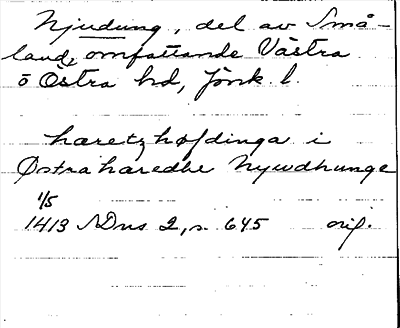 Njudung, del av Små-
land, omfattande Västra
o Östra hd, Jönk. l.
haretzhøfdinga i
Østra haredhe Nywdhunge
1/5
1413 SDns 2, s. 645 orig.